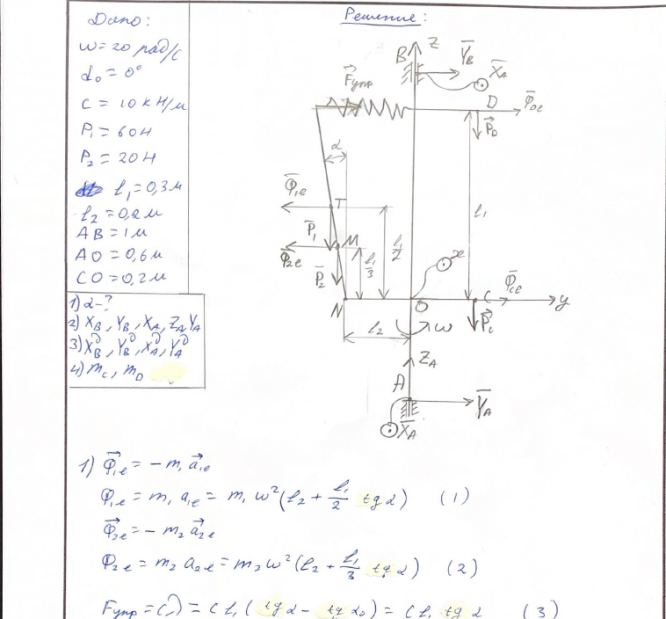 Дано:
ω=20 рад/с
α₀=0°
c = 10 кН/м
P₁=60Н
P₂=20Н
l₁=0,3м
l₂=0,2м
AB=1м
AO=0,6м
CO=0,2м
1) α-?
2) X_B, Y_B, X_A, Z_A, Y_A
3) X_B^д, Y_B^д, X_A^д, Y_A^д
4) m_C, m_D
Решение:
B z Y̅_B
X̅_A
F⃗упр D Φ̅_De
P⃗_D
α
Φ̅_1e T l₁
P̅₁ M l₁/2
Φ̅_2e l₁/3 x
P̅₂
N O C Φ̅_Ce y
l₂ ω P⃗_C
Z_A
A Y̅_A
X̅_A
1) Φ⃗_1e = - m₁ a⃗_1e
Φ_1e = m₁ a_1e = m₁ ω² (l₂ + l₁/2 tg α) (1)
Φ⃗_2e = - m₂ a⃗_2e
Φ_2e = m₂ a_2e = m₂ ω² (l₂ + l₁/3 tg α) (2)
Fупр = cλ = c l₁ ( tg α - tg α₀ ) = c l₁ tg α (3)